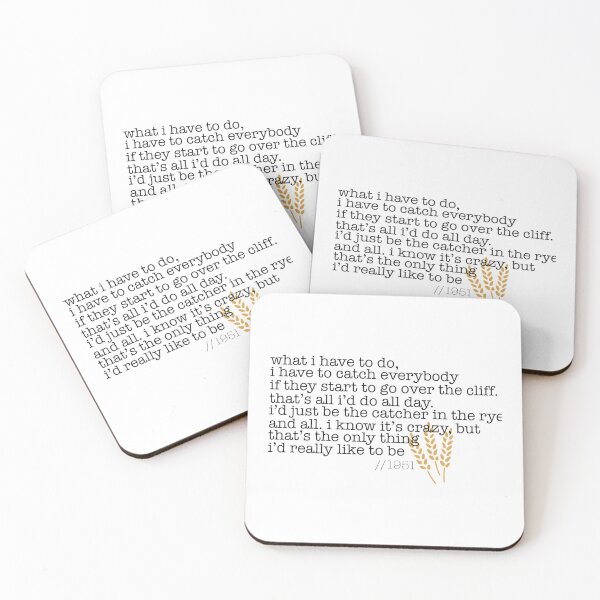 what i have to do,
i have to catch everybody
if they start to go over the cliff.
that's all i'd do all day.
i'd just be the catcher in the
and all. i know it's crazy, but
what i have to do,
i have to catch everybody
if they start to go over the cliff.
that's all i'd do all day.
i'd just be the catcher in the rye
and all. i know it's crazy, but
that's the only thing
i'd really like to be
//1951
what i have to do,
i have to catch everybody
if they start to go over the cliff.
that's all i'd do all day.
i'd just be the catcher in the rye
and all. i know it's crazy, but
that's the only thing
i'd really like to be
//1951
what i have to do,
i have to catch everybody
if they start to go over the cliff.
that's all i'd do all day.
i'd just be the catcher in the rye
and all. i know it's crazy, but
that's the only thing
i'd really like to be
//1951